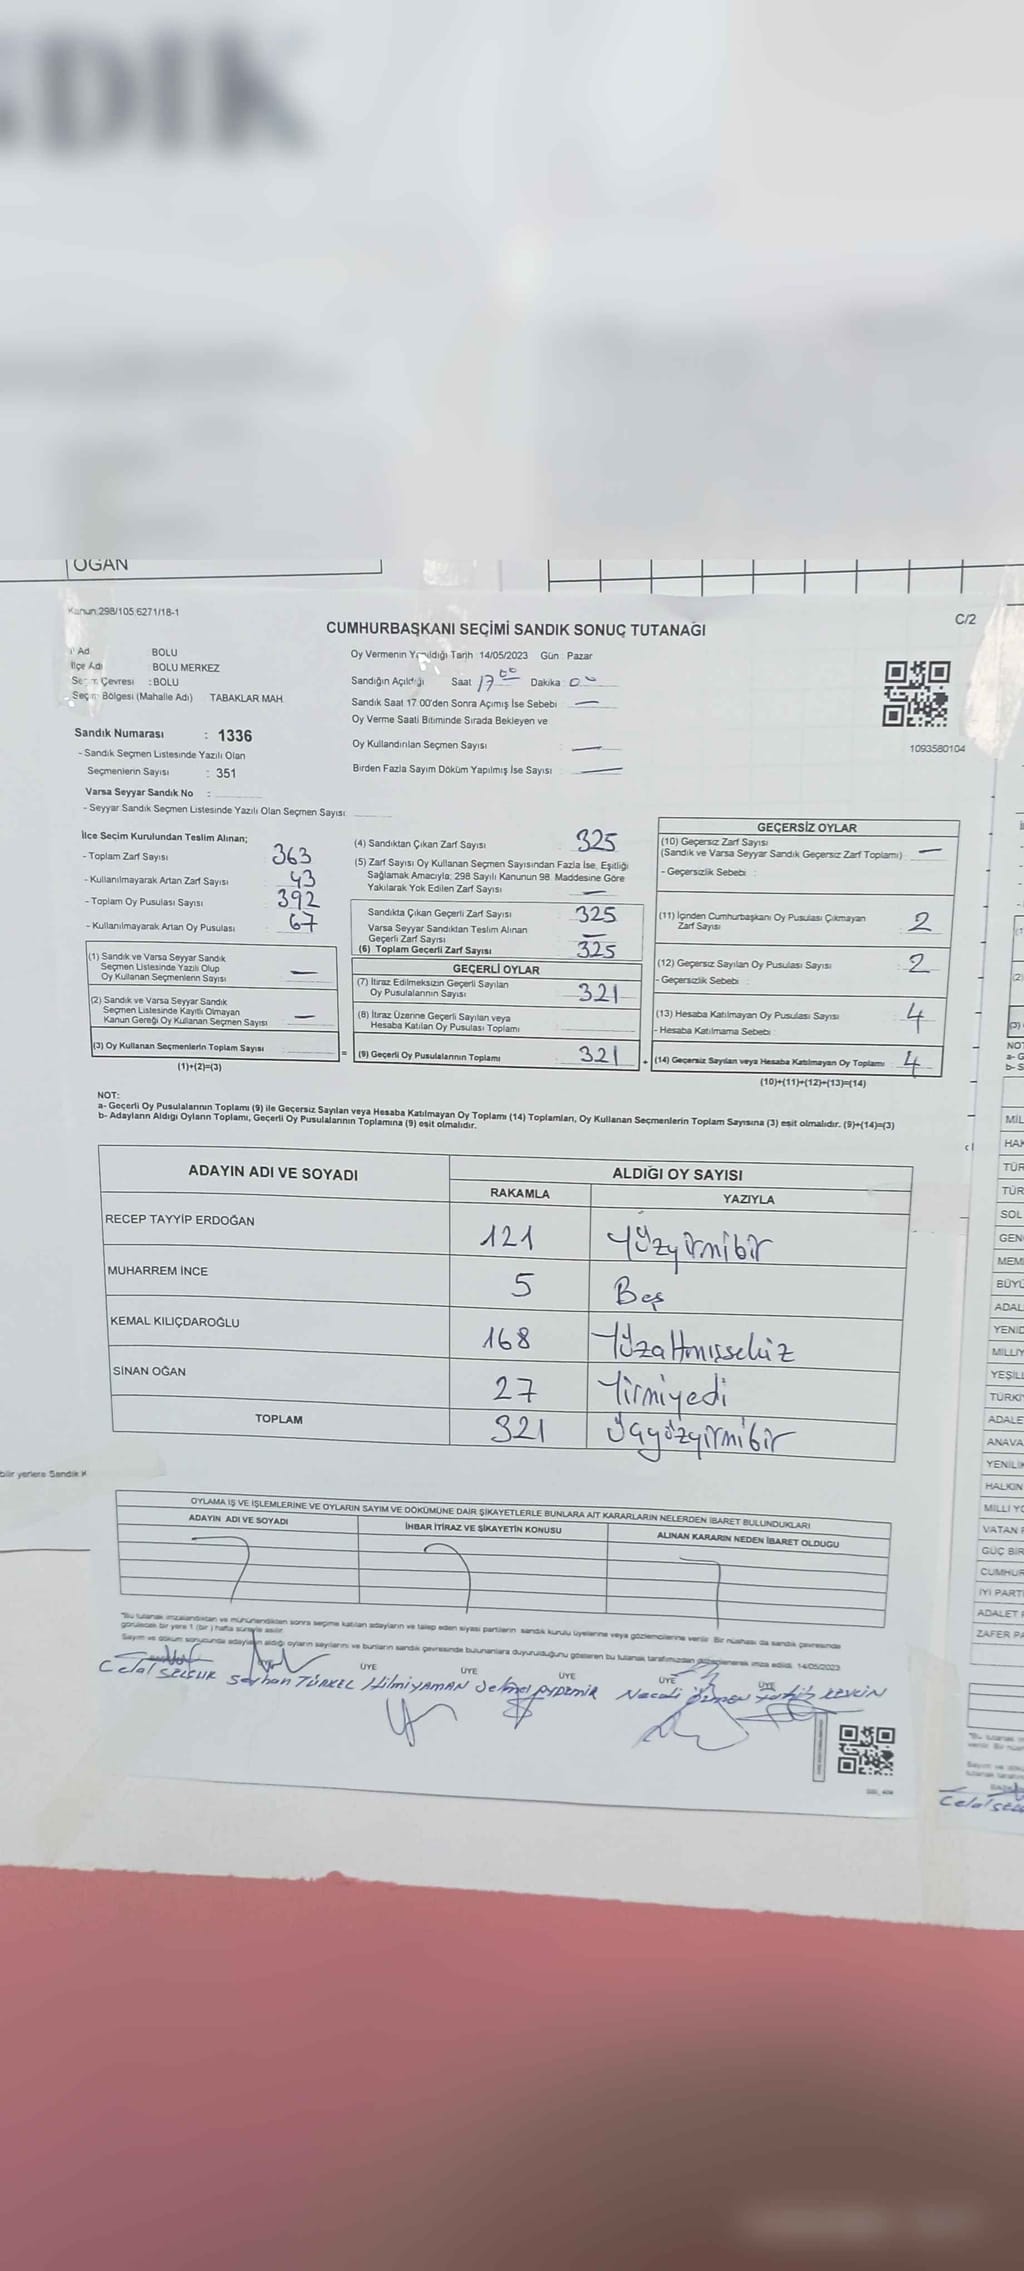 SDIK
OĞAN
Kanun:298/105,6271/18-1
C/2
CUMHURBAŞKANI SEÇİMİ SANDIK SONUÇ TUTANAĞI
Adı BOLU
İlçe Adı BOLU MERKEZ
Seçim Çevresi : BOLU
Seçim Bölgesi (Mahalle Adı) TABAKLAR MAH
Sandık Numarası : 1336
- Sandık Seçmen Listesinde Yazılı Olan
Seçmenlerin Sayısı : 351
Varsa Seyyar Sandık No :
- Seyyar Sandık Seçmen Listesinde Yazılı Olan Seçmen Sayısı
Oy Vermenin Yapıldığı Tarih 14/05/2023 Gün : Pazar
Sandığın Açıldığı Saat 17 00 Dakika
Sandık Saat 17:00'den Sonra Açımış İse Sebebi —
Oy Verme Saati Bitiminde Sırada Bekleyen ve
Oy Kullandırılan Seçmen Sayısı —
Birden Fazla Sayım Döküm Yapılmış İse Sayısı —
1093580104
İlce Seçim Kurulundan Teslim Alınan;
- Toplam Zarf Sayısı 363
- Kullanılmayarak Artan Zarf Sayısı 43
- Toplam Oy Pusulası Sayısı 392
- Kullanılmayarak Artan Oy Pusulası 67
(1) Sandık ve Varsa Seyyar Sandık
Seçmen Listesinde Yazılı Olup
Oy Kullanan Seçmenlerin Sayısı —
(2) Sandık ve Varsa Seyyar Sandık
Seçmen Listesinde Kayıtlı Olmayan
Kanun Gereği Oy Kullanan Seçmen Sayısı —
(3) Oy Kullanan Seçmenlerin Toplam Sayısı
(1)+(2)=(3)
=
(4) Sandıktan Çıkan Zarf Sayısı 325
(5) Zarf Sayısı Oy Kullanan Seçmen Sayısından Fazla İse, Eşitliği
Sağlamak Amacıyla; 298 Sayılı Kanunun 98. Maddesine Göre
Yakılarak Yok Edilen Zarf Sayısı —
Sandıkta Çıkan Geçerli Zarf Sayısı 325
Varsa Seyyar Sandıktan Teslim Alınan
Geçerli Zarf Sayısı —
(6) Toplam Geçerli Zarf Sayısı 325
GEÇERLİ OYLAR
(7) İtiraz Edilmeksizin Geçerli Sayılan
Oy Pusulalarının Sayısı 321
(8) İtiraz Üzerine Geçerli Sayılan veya
Hesaba Katılan Oy Pusulası Toplamı
(9) Geçerli Oy Pusulalarının Toplamı 321
+
GEÇERSİZ OYLAR
(10) Geçersiz Zarf Sayısı
(Sandık ve Varsa Seyyar Sandık Geçersiz Zarf Toplamı) —
- Geçersizlik Sebebi :
(11) İçinden Cumhurbaşkanı Oy Pusulası Çıkmayan
Zarf Sayısı 2
(12) Geçersiz Sayılan Oy Pusulası Sayısı 2
- Geçersizlik Sebebi
(13) Hesaba Katılmayan Oy Pusulası Sayısı 4
- Hesaba Katılmama Sebebi :
(14) Geçersiz Sayılan veya Hesaba Katılmayan Oy Toplamı 4
(10)+(11)+(12)+(13)=(14)
NOT:
a- Geçerli Oy Pusulalarının Toplamı (9) ile Geçersiz Sayılan veya Hesaba Katılmayan Oy Toplamı (14) Toplamları, Oy Kullanan Seçmenlerin Toplam Sayısına (3) eşit olmalıdır. (9)+(14)=(3)
b- Adayların Aldığı Oyların Toplamı, Geçerli Oy Pusulalarının Toplamına (9) eşit olmalıdır.
ADAYIN ADI VE SOYADI
ALDIĞI OY SAYISI
RAKAMLA YAZIYLA
RECEP TAYYİP ERDOĞAN 121 Yüzyirmibir
MUHARREM İNCE 5 Beş
KEMAL KILIÇDAROĞLU 168 Yüzaltmışsekiz
SİNAN OĞAN 27 Yirmiyedi
TOPLAM 321 Üçyüzyirmibir
OYLAMA İŞ VE İŞLEMLERİNE VE OYLARIN SAYIM VE DÖKÜMÜNE DAİR ŞİKAYETLERLE BUNLARA AİT KARARLARIN NELERDEN İBARET BULUNDUKLARI
ADAYIN ADI VE SOYADI
İHBAR İTİRAZ VE ŞİKAYETİN KONUSU
ALINAN KARARIN NEDEN İBARET OLDUĞU
"Bu tutanak imzalandıktan ve mühürlendikten sonra seçime katılan adayların ve talep eden siyasi partilerin sandık kurulu üyelerine veya gözlemcilerine verilir. Bir nüshası da sandık çevresinde
görülecek bir yere 1 (bir) hafta süreyle asılır.
Sayım ve döküm sonucunda adayların aldığı oyların sayılarını ve bunların sandık çevresinde bulunanlara duyurulduğunu gösteren bu tutanak tarafımızdan düzenlenerek imza edildi. 14/05/2023
ÜYE ÜYE ÜYE ÜYE ÜYE
Celal SELÇUK Serhan TÜRKEL Hilmi YAMAN AYDEMİR Necati
bilir yerlere Sandık K
NOT
MİL
HAK
TÜR
TÜR
SOL
GEN
MEM
BÜYÜ
ADAL
YENİD
MİLLİY
YEŞİL
TÜRKİ
ADALE
ANAVA
YENİLİK
HALKIN
MİLLİ YO
VATAN P
GÜÇ BİR
CUMHUR
İYİ PARTİ
ADALET
ZAFER PA
Celal SEL